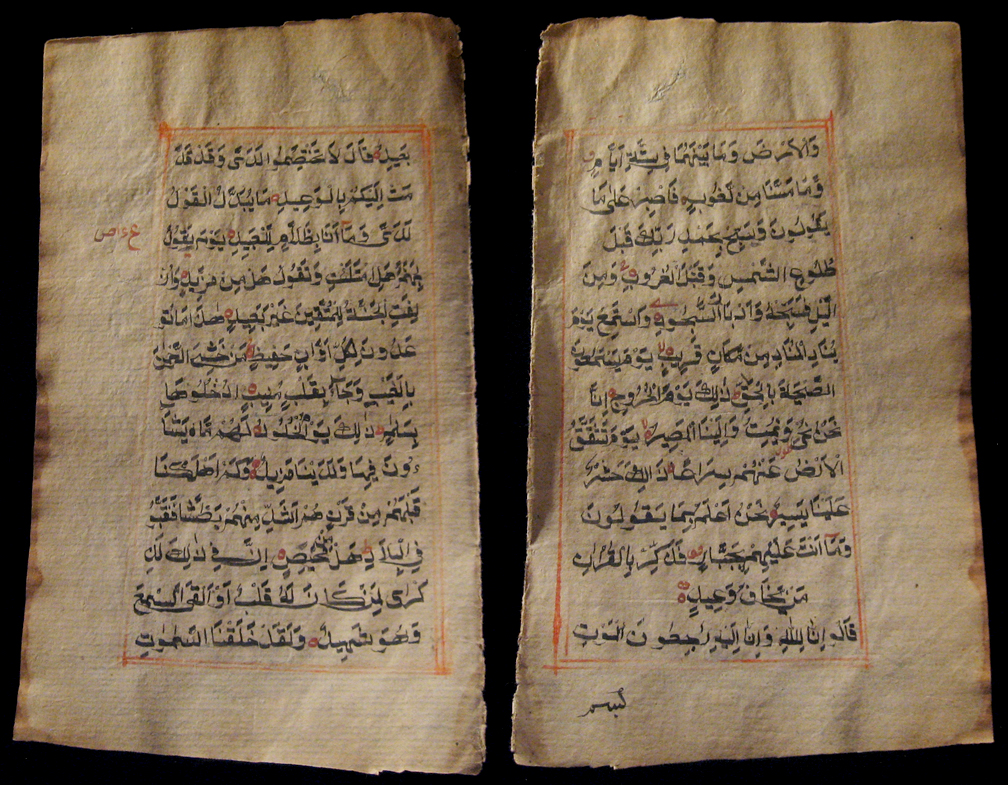 بَعِيدٍ قَالَ لَا تَخْتَصِمُوا لَدَىَّ وَقَدْ قَدَّ
مْتُ اِلَيْكُمْ بِالْوَعِيدِ مَا يُبَدَّلُ الْقَوْلُ
لَدَىَّ وَمَآ اَنَا بِظَلَّامٍ لِلْعَبِيدِ يَوْمَ يَقُولُ
لِجَهَنَّمَ هَلِ امْتَلَئْتِ وَتَقُولُ هَلْ مِنْ مَزِيدٍ وَاُزْ
لِفَتِ الْجَنَّةُ لِلْمُتَّقِينَ غَيْرَ بَعِيدٍ هٰذَا مَا تُو
عَدُونَ لِكُلِّ اَوَّابٍ حَفِيظٍ مَنْ خَشِىَ الرَّحْمٰنَ
بِالْغَيْبِ وَجَآءَ بِقَلْبٍ مُنِيبٍ ادْخُلُوهَا
بِسَلٰمٍ ذٰلِكَ يَوْمُ الْخُلُودِ لَهُمْ مَا يَشَآ
ءُونَ فِيهَا وَلَدَيْنَا مَزِيدٌ وَكَمْ اَهْلَكْنَا
قَبْلَهُمْ مِنْ قَرْنٍ هُمْ اَشَدُّ مِنْهُمْ بَطْشًا فَنَقَّبُوا
فِى الْبِلَادِ هَلْ مِنْ مَحِيصٍ اِنَّ فِى ذٰلِكَ لَذِ
كْرٰى لِمَنْ كَانَ لَهُ قَلْبٌ اَوْ اَلْقَى السَّمْعَ
وَهُوَ شَهِيدٌ وَلَقَدْ خَلَقْنَا السَّمٰوٰتِ
وَالْاَرْضَ وَمَا بَيْنَهُمَا فِى سِتَّةِ اَيَّامٍ
وَمَا مَسَّنَا مِنْ لُغُوبٍ فَاصْبِرْ عَلٰى مَا
يَقُولُونَ وَسَبِّحْ بِحَمْدِ رَبِّكَ قَبْلَ
طُلُوعِ الشَّمْسِ وَقَبْلَ الْغُرُوبِ وَمِنَ
الَّيْلِ فَسَبِّحْهُ وَاَدْبَارَ السُّجُودِ وَاسْتَمِعْ يَوْمَ
يُنَادِ الْمُنَادِ مِنْ مَكَانٍ قَرِيبٍ يَوْمَ يَسْمَعُونَ
الصَّيْحَةَ بِالْحَقِّ ذٰلِكَ يَوْمُ الْخُرُوجِ اِنَّا
نَحْنُ نُحْىِ وَنُمِيتُ وَاِلَيْنَا الْمَصِيرُ يَوْمَ تَشَقَّقُ
الْاَرْضُ عَنْهُمْ سِرَاعًا ذٰلِكَ حَشْرٌ
عَلَيْنَا يَسِيرٌ نَحْنُ اَعْلَمُ بِمَا يَقُولُونَ
وَمَآ اَنْتَ عَلَيْهِمْ بِجَبَّارٍ فَذَكِّرْ بِالْقُرْاٰنِ
مَنْ يَخَافُ وَعِيدِ
قَالُو اِنَّا لِلّٰهِ وَاِنَّا اِلَيْهِ رٰجِعُونَ الموت
بسم